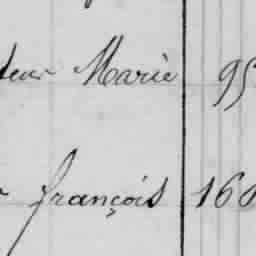 Marie 95
françois 160